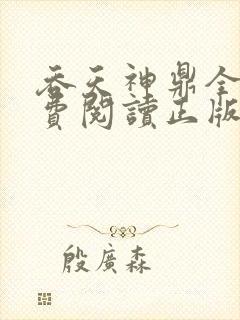 吞天神鼎全
費閱讀正版
殷廣森